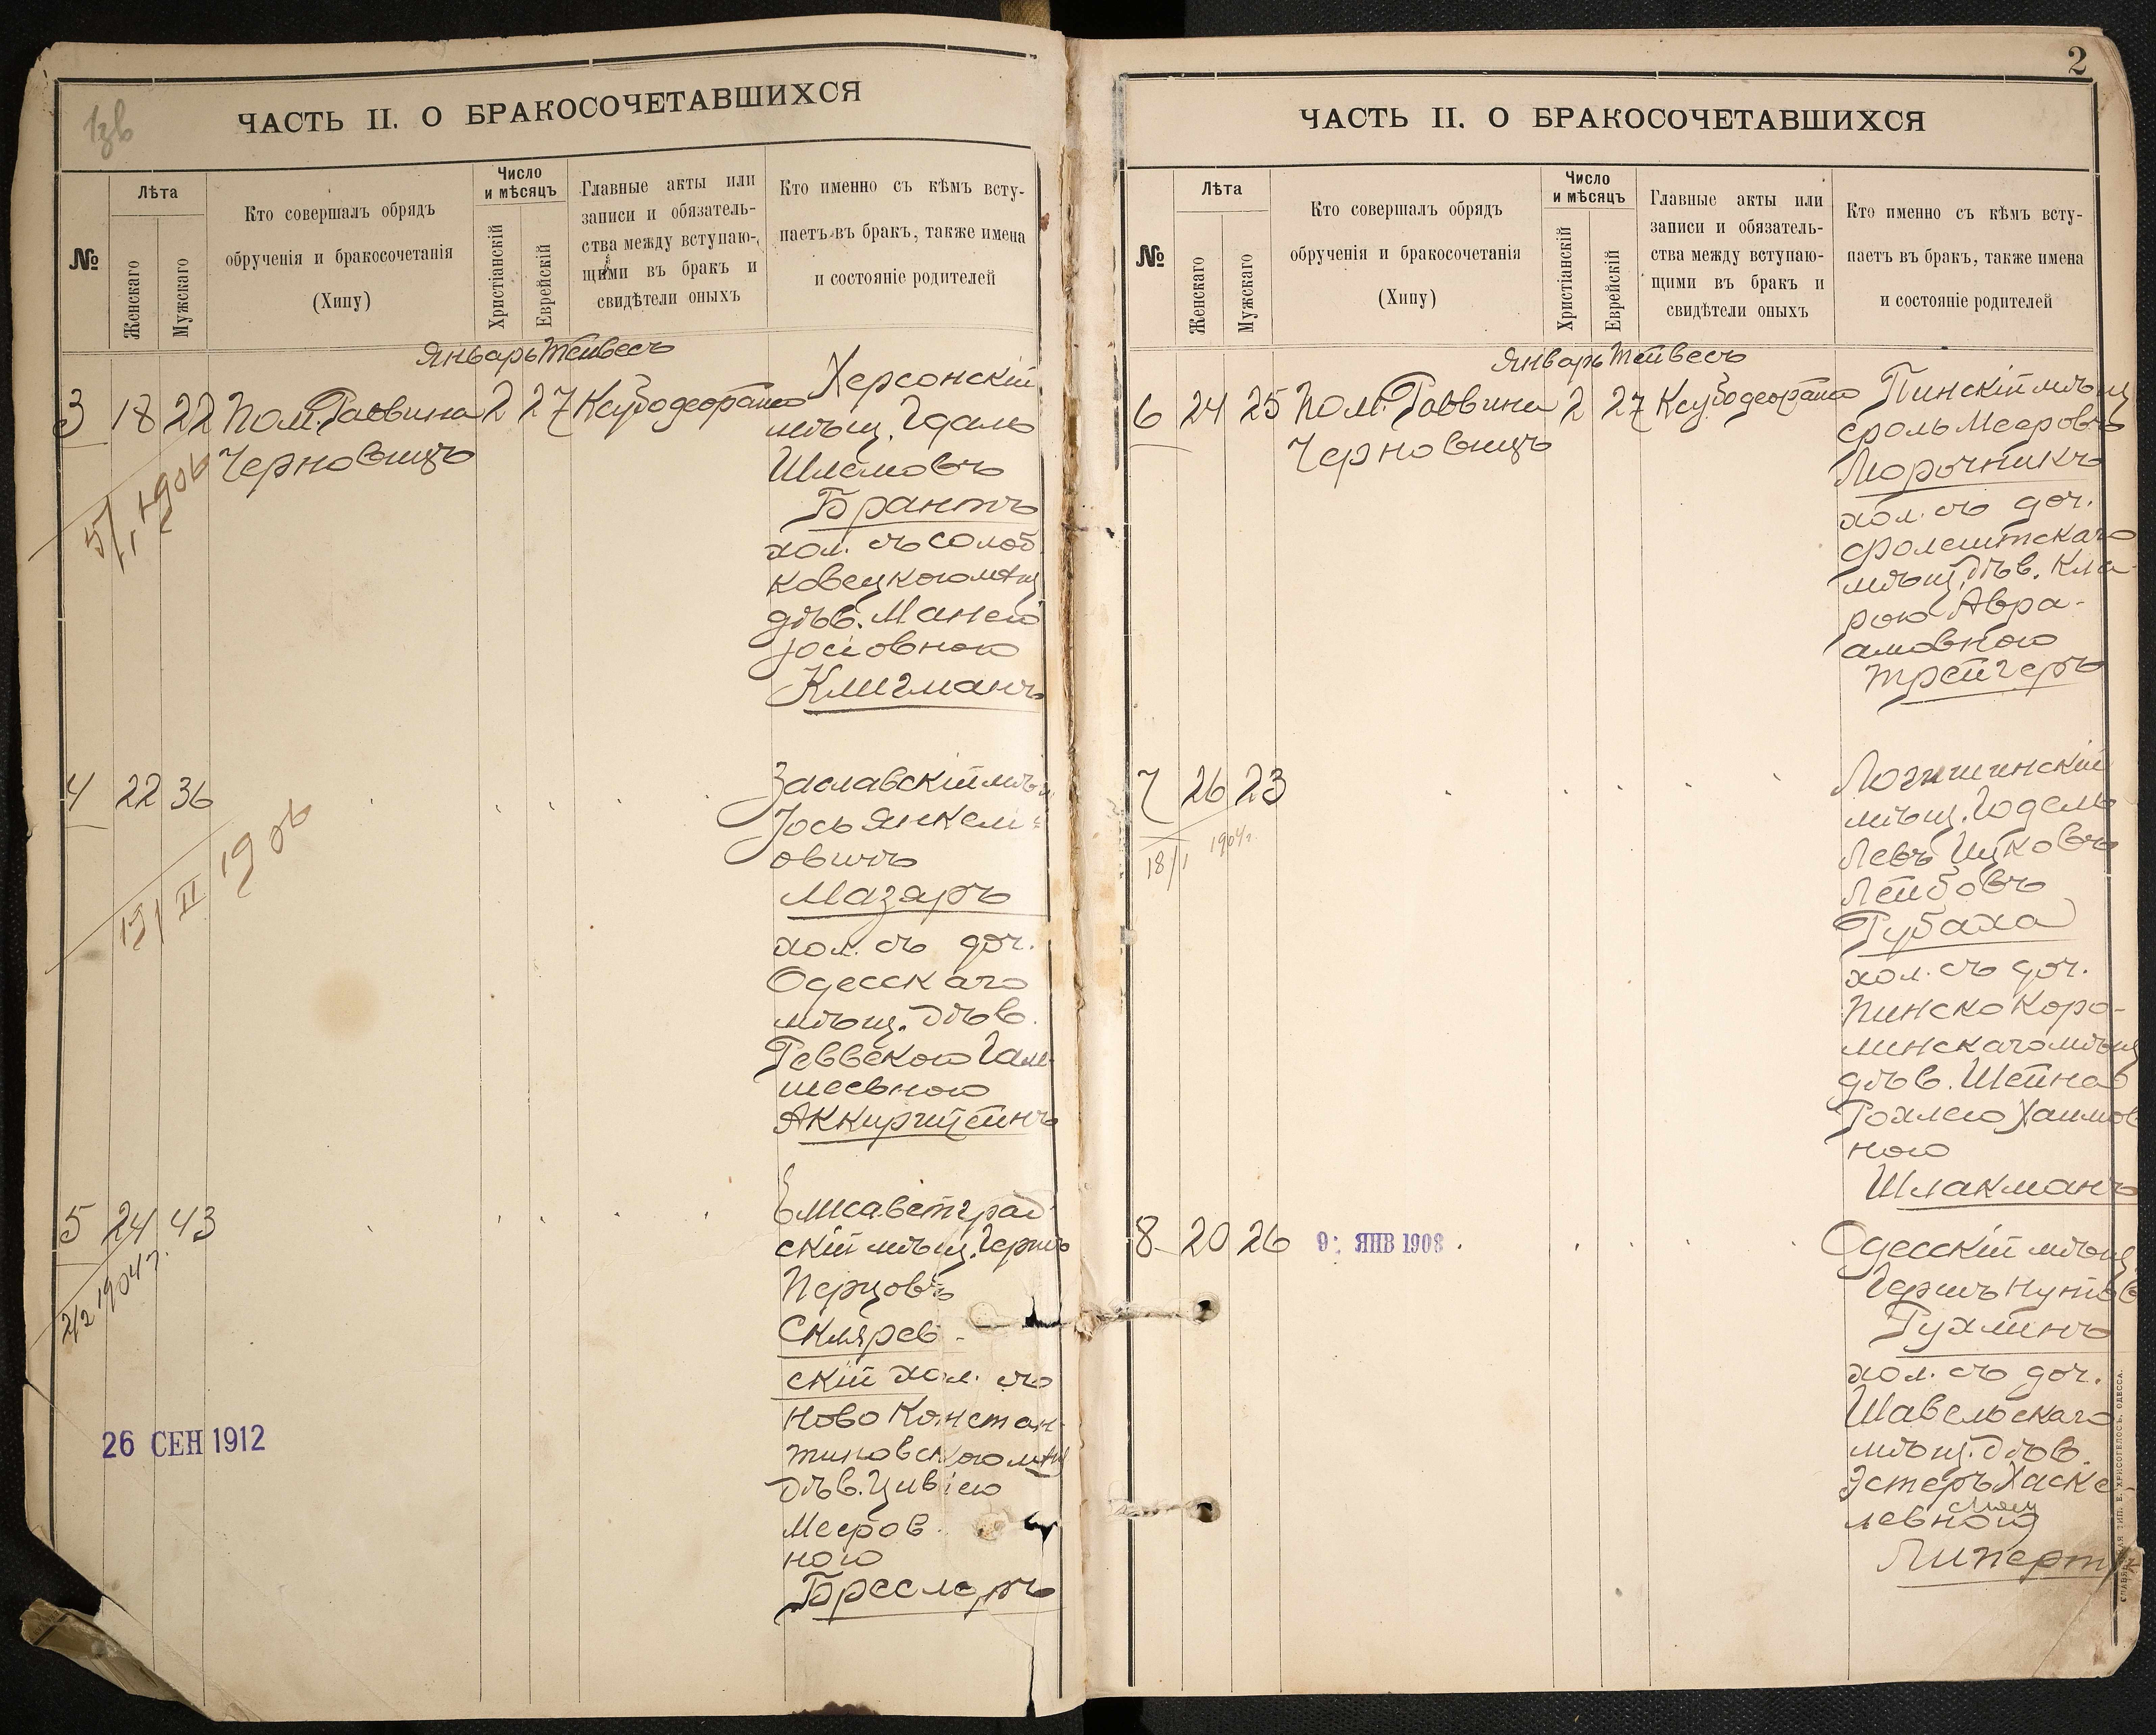 ЧАСТЬ II. О БРАКОСОЧЕТАВШИХСЯ
№
Лѣта
Женскаго
Мужскаго
Кто совершалъ обрядъ
обрученія и бракосочетанія
(Хипу)
Число
и мѣсяцъ
Христіанскій
Еврейскій
Главные акты или
записи и обязатель-
ства между вступаю-
щими въ бракъ и
свидѣтели оныхъ
Кто именно съ кѣмъ всту-
паетъ въ бракъ, также имена
и состояніе родителей
Январь Тейвесъ
3 18 22 Пом. Раввина 2 27 Ксубодеорайта
Черновицъ
5/I 1906
Херсонскій
мѣщ. Гдаль
Шлемовъ
Брантъ
хол. съ солоб
ковецкою мѣщ
дѣв. Манею
Іосіовною
Клигманъ
4 22 36
19/II 1906
Заславскій мѣщ
Іось Янкели
овичъ
Мазаръ
хол. съ доч.
Одесскаго
мѣщ. дѣв.
Реввекою Гам
шеевною
Аккирштейнъ
5 24 43
2/2 1904 г.
26 СЕН 1912
Елисаветград
скій мѣщ. Гершъ
Перцовъ
Скляров-
скій хол. съ
Ново Констан-
тиновскою мѣщ
дѣв. Цивіею
Мееров
ною
Бреслеръ
2
ЧАСТЬ II. О БРАКОСОЧЕТАВШИХСЯ
№
Лѣта
Женскаго
Мужскаго
Кто совершалъ обрядъ
обрученія и бракосочетанія
(Хипу)
Число
и мѣсяцъ
Христіанскій
Еврейскій
Главные акты или
записи и обязатель-
ства между вступаю-
щими въ бракъ и
свидѣтели оныхъ
Кто именно съ кѣмъ всту-
паетъ въ бракъ, также имена
и состояніе родителей
Январь Тейвесъ
6 24 25 Пом. Раввина 2 27 Ксубодеорайта
Черновицъ
Пинскій мѣщ
сроль Мееровъ
Морочникъ
хол. съ доч.
Фролештскаго
мѣщ. дѣв. Кла-
рою Авра-
амовною
Трейгеръ
7 26 23
18/I 1904 г.
Логишинскій
мѣщ. Годель
Левъ Ицковъ
Лейбовъ
Рубаха
хол. съ доч.
Пинско Каро-
линскаго мѣщ
дѣв. Шейна
Рохлею Хаимов
ною
Шлакманъ
8 20 26
9 ЯНВ 1908
Одесскій мѣщ
Гершъ Нутов
Рухлинъ
хол. съ доч.
Шавельскаго
мѣщ. дѣв.
Эстеръ Хаске-
левною
Липертъ
СЛАВЯНСКАЯ ТИП. Е. ХРИСОГЕЛОСЪ, ОДЕССА.